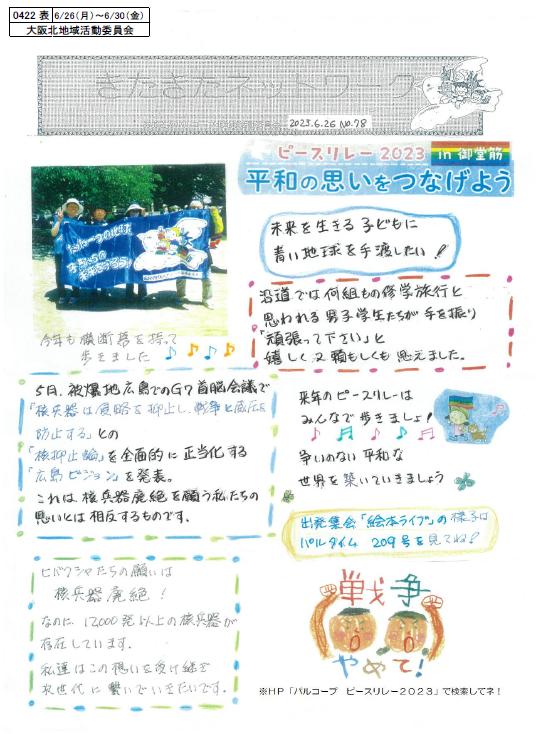 0422 表 6/26(月)~6/30(金)
大阪北地域活動委員会
きたきたネットワーク
2023.6.26 No.78
ピースリレー2023 in 御堂筋
平和の思いをつなげよう
未来を生きる子どもに
青い地球を手渡したい!
今年も横断幕を持って
歩きました
沿道では何組もの修学旅行と
思われる男子学生たちが手を振り
「頑張って下さい」と
嬉しく又頼もしくも思えました。
5月、被爆地広島でのG7首脳会議で
「核兵器は侵略を抑止し、戦争と威圧を
防止する」との
「核抑止論」を全面的に正当化する
「広島ビジョン」を発表。
これは核兵器廃絶を願う私たちの
思いとは相反するものです。
来年のピースリレーは
みんなで歩きましょ!
争いのない平和な
世界を築いていきましょう
出発集会「絵本ライブ」の様子は
パルタイム 209号を見てね!
ヒバクシャたちの願いは
核兵器廃絶!
なのに12000発以上の核兵器が
存在しています。
私達はこの想いを受け継ぎ
次世代に繋いでいきたいです。
戦争
やめて!
※HP「パルコープ ピースリレー2023」で検索してネ!